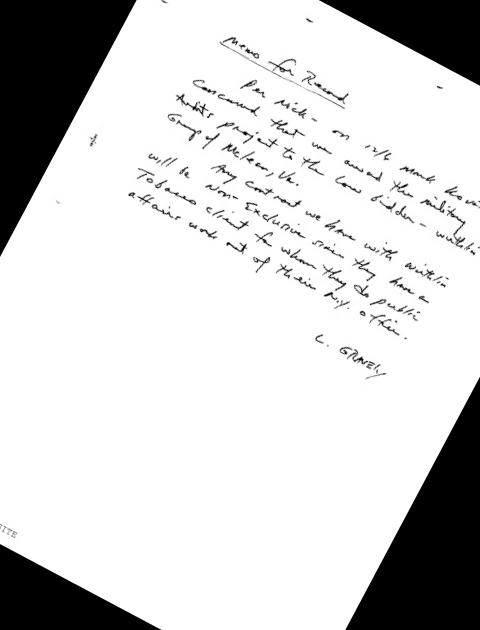 Memo for Record
Per Nick - on 12/6 Mark
Concurred that we award the military
Audits project to the low bidder - Wirthlin
Group of McLean, Va.
Any contract we have with Wirthlin
will be Non-Exclusive since they have a
Tobacco client for whom they do public
affairs work out of their N.Y. office.
L. GRAVELY